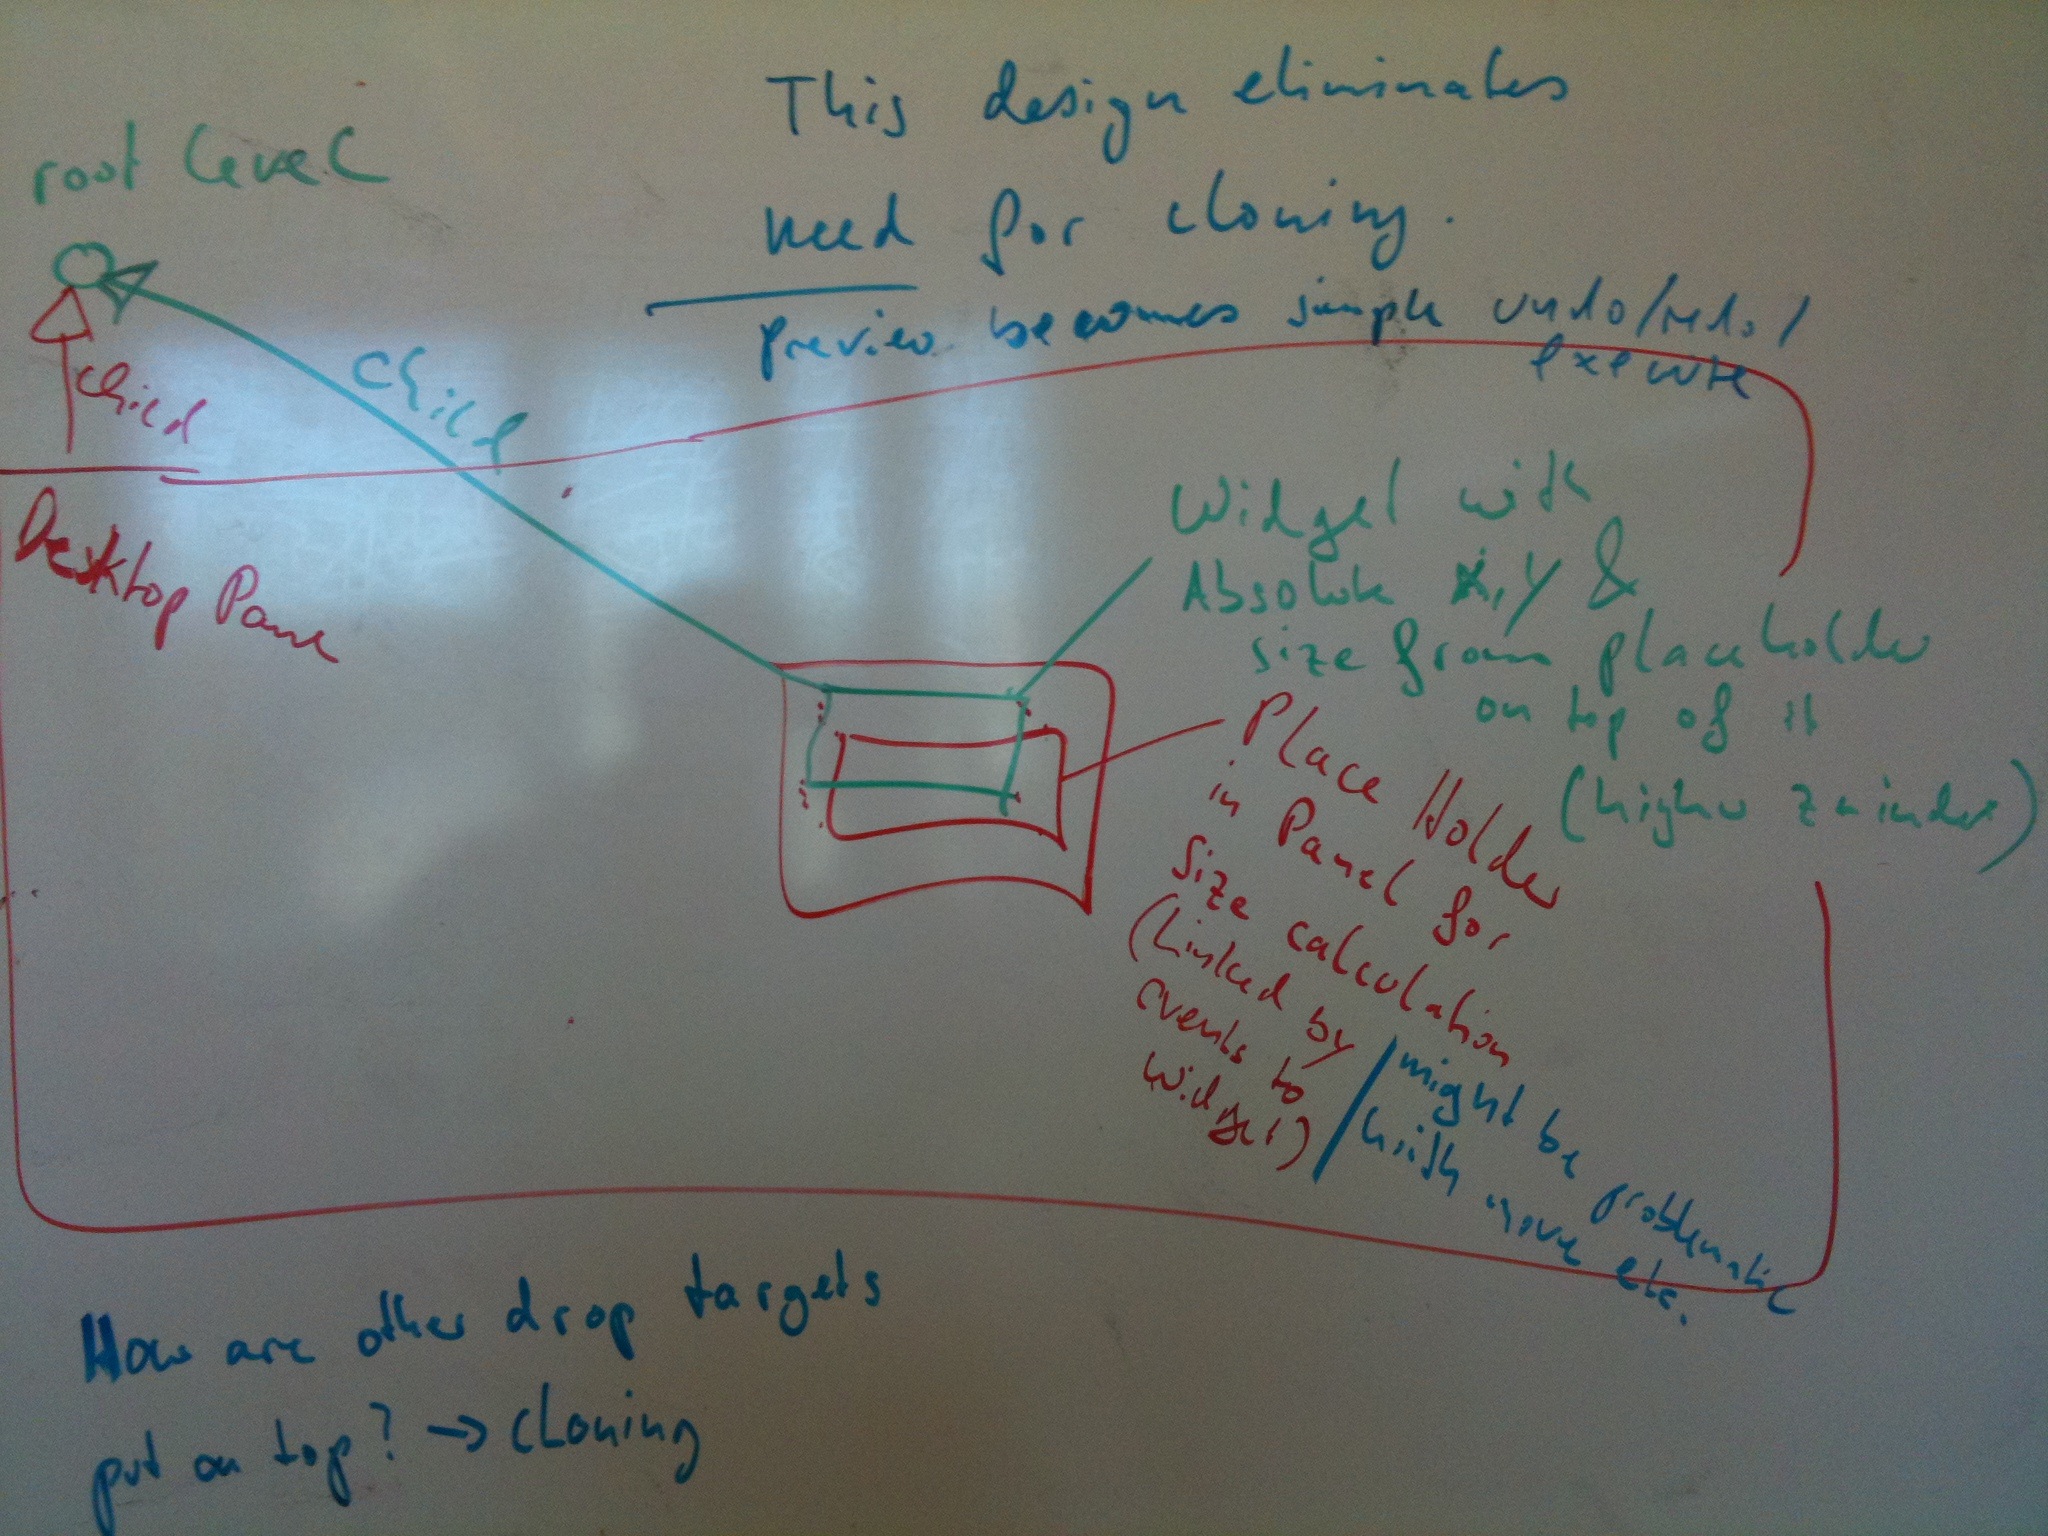 This design eliminates
need for cloning.
preview becomes simple undo/redo/
execute
root level
child
child
Desktop Pane
Widget with
Absolute x,y &
size from placeholder
on top of it
(higher z-index)
Place Holder
in Panel for
Size calculation
(Linked by
events to
Widget)
/might be problematic
with move etc.
How are other drop targets
put on top? → cloning